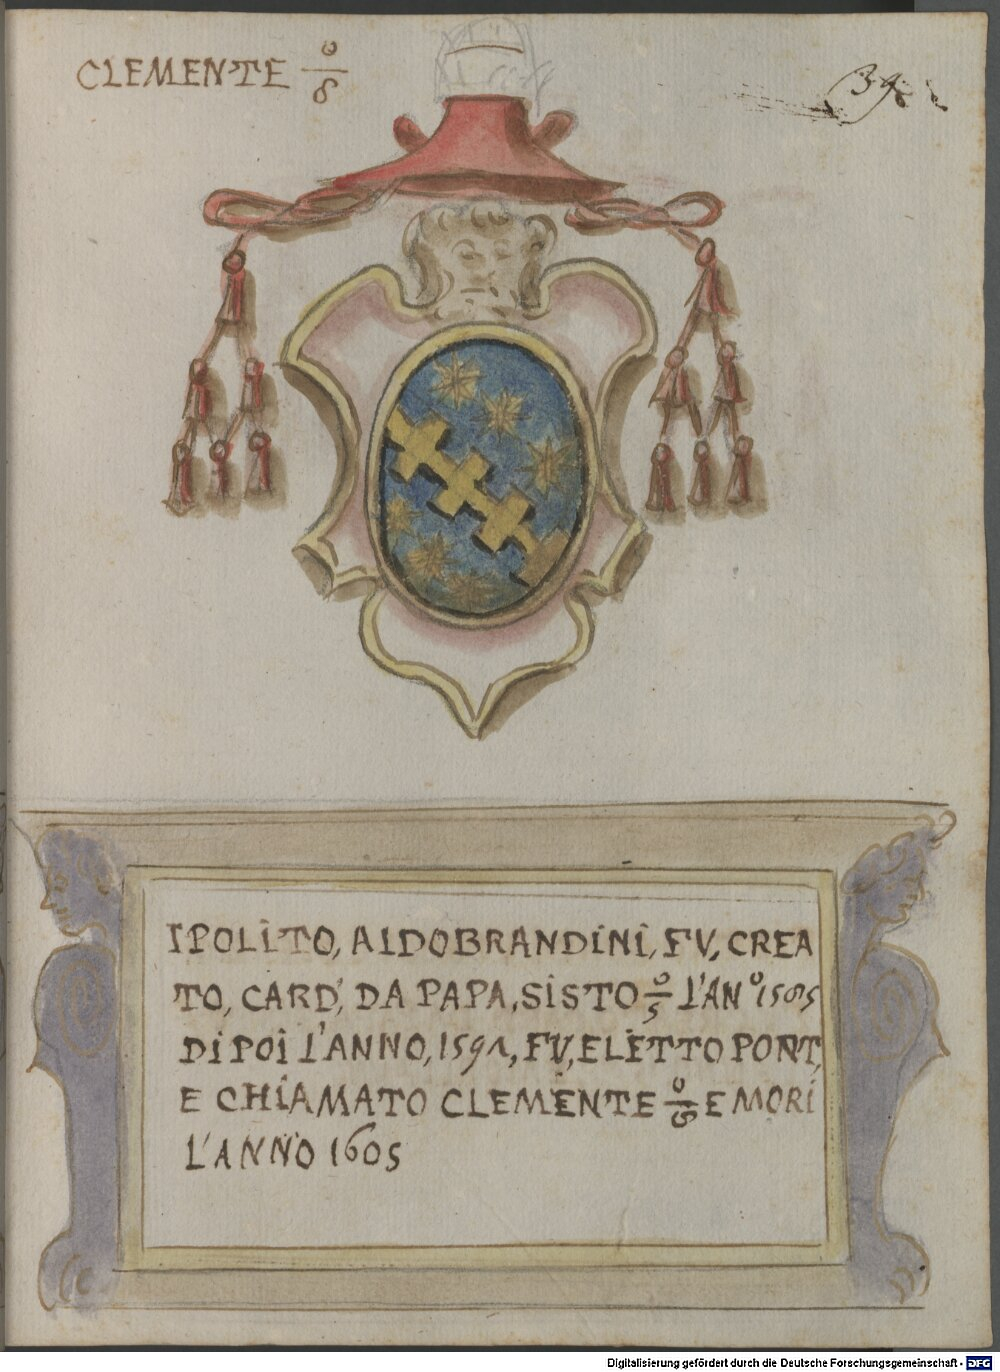 CLEMENTE º/8
IPOLITO, ALDOBRANDINI, FV, CREA
TO, CARD, DA PAPA, SISTO º/5 L'ANº 1585
DIPOI L'ANNO, 1591, FV, ELETTO PONT,
E CHIAMATO CLEMENTE º/8 E MORI
L'ANNO 1605
Digitalisierung gefördert durch die Deutsche Forschungsgemeinschaft - DFG